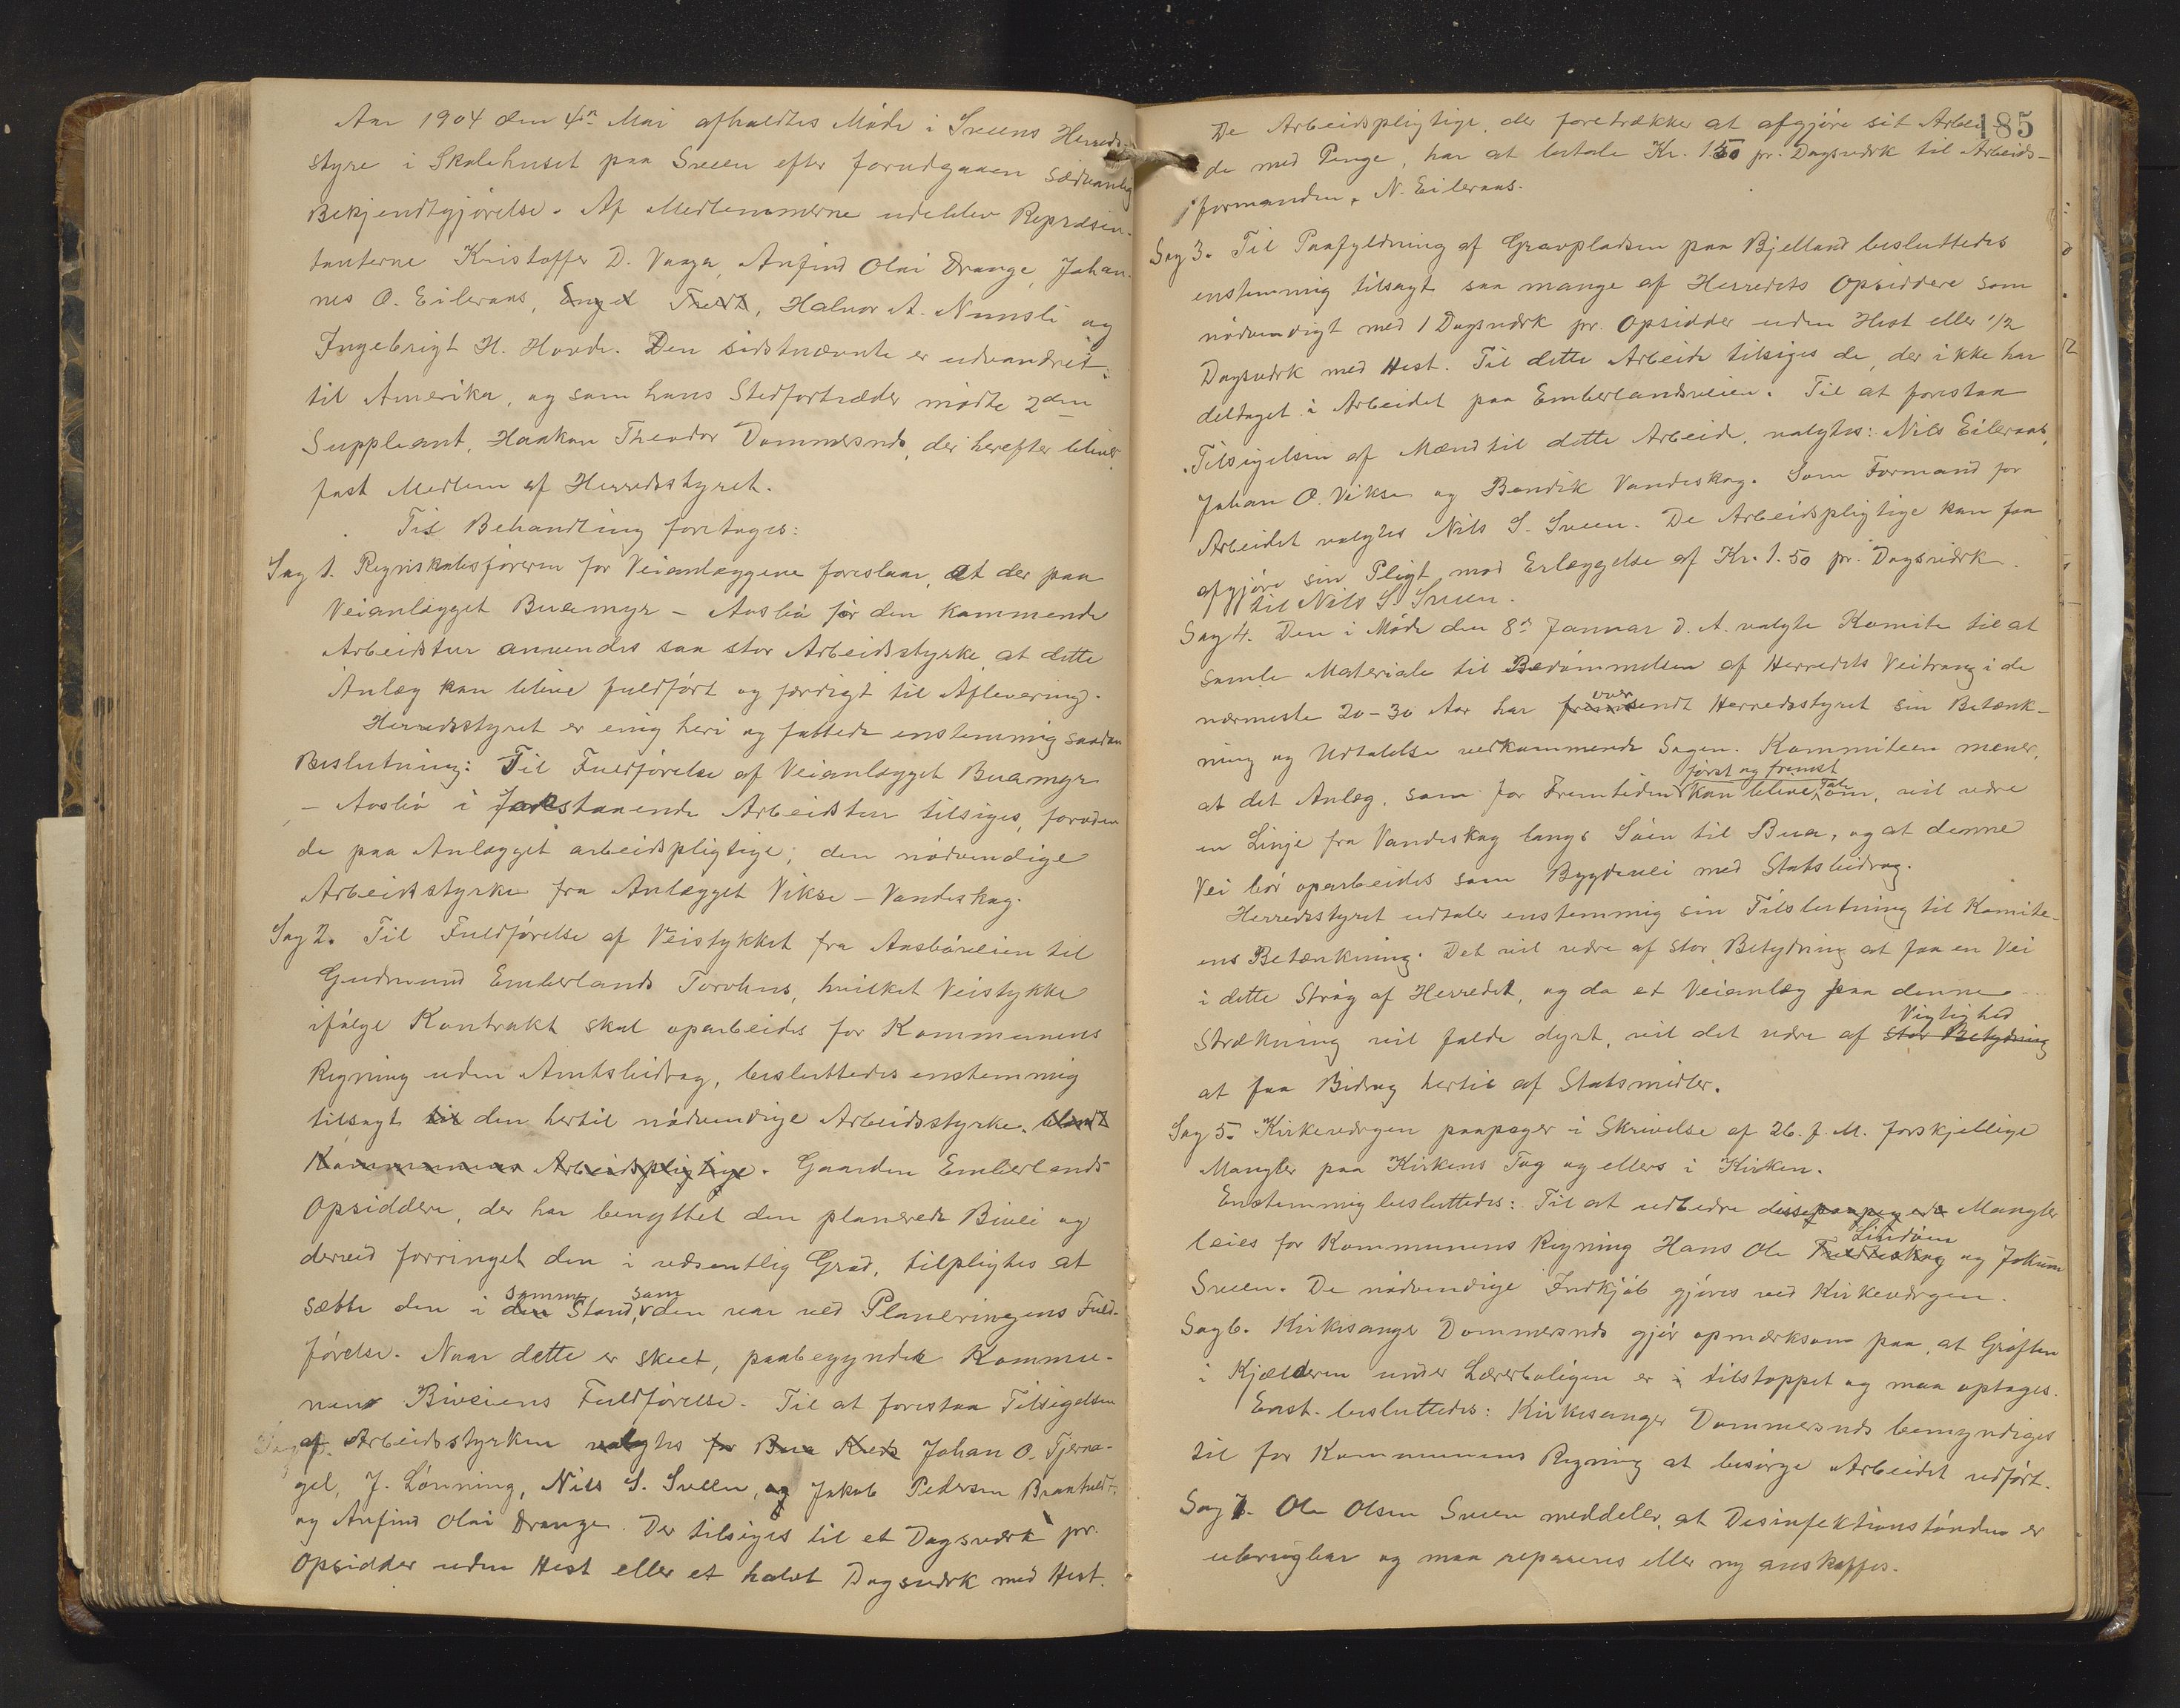 Aar 1904 den 4n Mai afholdtes Møde i Sveens Herreds-
styre i Skolehuset paa Sveen efter forudgaaen sædvanlig
Bekjendtgjørelse. Af Medlemmerne udeblev Repræsen-
tanterne Kristoffer D. Vaaga, Anfind Olai Drange, Johan-
nes O. Eileraas, Engel Tveit, Halvor A. Nonsli og
Ingebrigt H. Hovda. Den sidstnævnte er udvandret
til Amerika, og som hans Stedfortræder mødte 2den
Suppleant, Haakon Theodor Dommersnes, der herefter bliver
fast Medlem af Herredsstyret.
Til Behandling foretoges:
Sag 1. Regnskabsføreren for Veianlæggene foreslaar, at der paa
Veianlægget Buamyr – Aasbø for den kommende
Arbeidstur anvendes saa stor Arbeidsstyrke, at dette
Anlæg kan blive fuldført og færdigt til Aflevering.
Herredsstyret er enig heri og fattede enstemmig saadan
Beslutning: Til Fuldførelse af Veianlægget Buamyr
– Aasbø i forestaaende Arbeidstur tilsiges, foruden
de paa Anlægget arbeidspligtige, den nødvendige
Arbeidsstyrke fra Anlægget Vikse – Vandeskog.
Sag 2. Til Fuldførelse af Veistykket fra Aasbøveien til
Gudmund Emberlands Torvhus, hvilket Veistykke
ifølge Kontrakt skal oparbeides for Kommunens
Regning uden Amtsbidrag, besluttedes enstemmig
tilsagt til den hertil nødvendige Arbeidsstyrke. blandt
Kommunens Arbeidspligtige. Gaarden Emberlands
Opsiddere, der har benyttet den planerede Bivei og
derved forringet den i væsentlig Grad, tilpligtes at
samme som
sætte den i den Stand, den var ved Planeringens Fuld-
førelse. Naar dette er skeet, paabegyndes Kommu-
nens Biveiens Fuldførelse. Til at forestaa Tilsigelsen
af Arbeidsstyrken valgtes for Bua Kreds Johan O. Tjerna-
gel, J. Lønning, Nils S. Sveen, og Jakob Pedersen Braatveit,
og Anfind Olai Drange. Der tilsiges til et Dagsværk pr.
Opsidder uden Hest eller et halvt Dagsværk med Hest.
185
De Arbeidspligtige, der foretrækker at afgjøre sit Arbei-
de med Penge, har at betale Kr. 1.50 pr. Dagsværk til Arbeids-
formanden, N. Eileraas.
Sag 3. Til Paafyldning af Gravpladsen paa Bjelland besluttedes
enstemmig tilsagt saa mange af Herredets Opsiddere som
nødvendigt med 1 Dagsværk pr. Opsidder uden Hest eller 1/2
Dagsværk med Hest. Til dette Arbeide tilsiges de, der ikke har
deltaget i Arbeidet paa Emberlandsveien. Til at forestaa
Tilsigelsen af Mænd til dette Arbeide, valgtes: Nils Eileraas,
Johan O. Vikse og Bendik Vandeskog. Som Formand for
Arbeidet valgtes Nils S. Sveen. De Arbeidspligtige kan faa
afgjøre sin Pligt mod Erlæggelse af Kr. 1.50 pr. Dagsværk
til Nils S. Sveen.
Sag 4. Den i Møde den 8n Januar d. A. valgte Komite til at
samle Materiale til Bedømmelsen af Herredets Veitrang i de
over
nærmeste 20-30 Aar har fremsendt Herredsstyret sin Betænk-
ning og Udtalelse vedkommende Sagen. Kommiteen mener,
først og fremst
at det Anlæg, som for Fremtiden kan blive Tale om, vil være
en Linje fra Vandeskog langs Søen til Bua, og at denne
Vei bør oparbeides som Bygdevei med Statsbidrag.
Herredsstyret udtaler enstemmig sin Tilslutning til Komite-
ens Betænkning. Det vil være af stor Betydning at faa en Vei
i dette Strøg af Herredet, og da et Veianlæg paa denne
Vigtighed
Strækning vil falde dyrt, vil det være af stor Betydning
at faa Bidrag hertil af Statsmidler.
Sag 5. Kirkeværgen paapeger i Skrivelse af 26. f. M. forskjellige
Mangler paa Kirkens Tag og ellers i Kirken.
Enstemmig besluttedes: Til at udbedre disse paapegede Mangler
Lindøen
leies for Kommunens Regning Hans Ole og Jokum
Sveen. De nødvendige Indkjøb gjøres ved Kirkeværgen.
Sag 6. Kirkesanger Dommersnes gjør opmærksom paa, at Grøften
i Kjælderen under Lærerboligen er i tilstoppet og maa optages.
Enst. besluttedes: Kirkesanger Dommersnes bemyndiges
til for Kommunens Regning at besørge Arbeidet udført.
Sag 7. Ole Olsen Sveen meddeler, at Desinfektionstønden er
ubrugbar og maa repareres eller ny anskaffes.